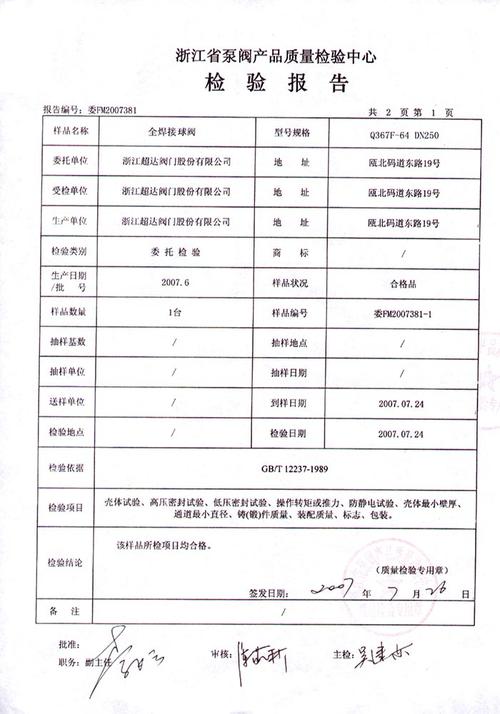 浙江省泵阀产品质量检验中心
检 验 报 告
报告编号：委FM2007381 共 2 页 第 1 页
样品名称 全焊接球阀 型号规格 Q367F-64 DN250
委托单位 浙江超达阀门股份有限公司 地 址 瓯北码道东路19号
受检单位 浙江超达阀门股份有限公司 地 址 瓯北码道东路19号
生产单位 浙江超达阀门股份有限公司 地 址 瓯北码道东路19号
检验类别 委托检验 商 标 /
生产日期
/批 号 2007.6 样品状况 合格品
样品数量 1台 样品编号 委FM2007381-1
抽样基数 / 抽样地点 /
抽样单位 / 抽样日期 /
送样单位 / 到样日期 2007.07.24
检验地点 / 检验日期 2007.07.24
检验依据 GB/T 12237-1989
检验项目 壳体试验、高压密封试验、低压密封试验、操作转矩或推力、防静电试验、壳体最小壁厚、
通道最小直径、铸(锻)件质量、装配质量、标志、包装。
该样品所检项目均合格。
检验结论
（质量检验专用章）
签发日期： 2007 年 7 月 26 日
备 注 /
批准：
职务：副主任 审核： 主检：